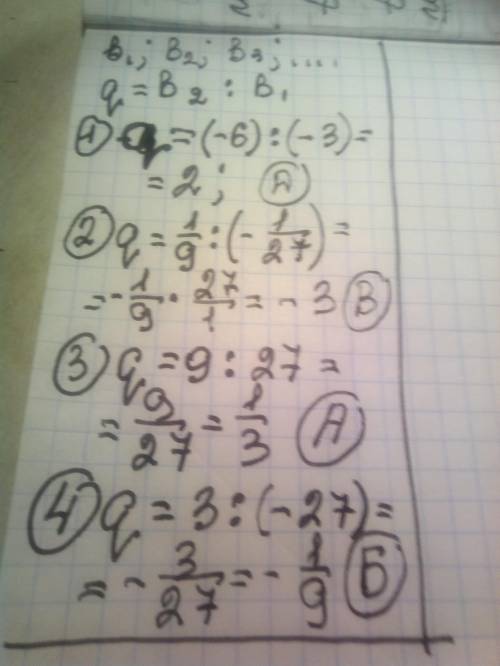 в₁; в₂; в₃; ....
q = в₂ : в₁
① q = (-6) : (-3) =
= 2; Д
② q = 1/9 : (- 1/27) =
= - 1/9 · 27/1 = - 3 В
③ q = 9 : 27 =
= 9/27 = 1/3 А
④ q = 3 : (-27) =
= - 3/27 = - 1/9 Б